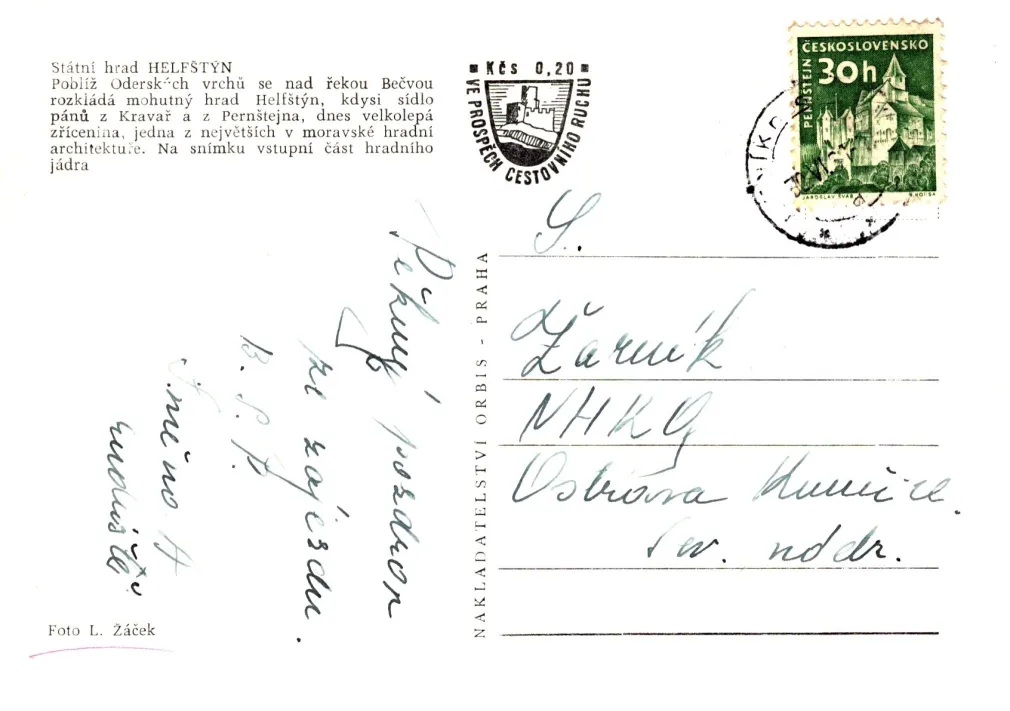 Státní hrad HELFŠTÝN
Poblíž Oderských vrchů se nad řekou Bečvou
rozkládá mohutný hrad Helfštýn, kdysi sídlo
pánů z Kravař a z Pernštejna, dnes velkolepá
zřícenina, jedna z největších v moravské hradní
architektuře. Na snímku vstupní část hradního
jádra
Kčs 0,20
VE PROSPĚCH CESTOVNÍHO RUCHU
ČESKOSLOVENSKO
30h
PERNŠTEJN
JAROSLAV ŠVÁB
Pěkný pozdrav
ze zájezdu.
B. S. P.
NAKLADATELSTVÍ ORBIS - PRAHA
S.
Žárník
NHKG
Ostrava Kunčice.
Foto L. Žáček